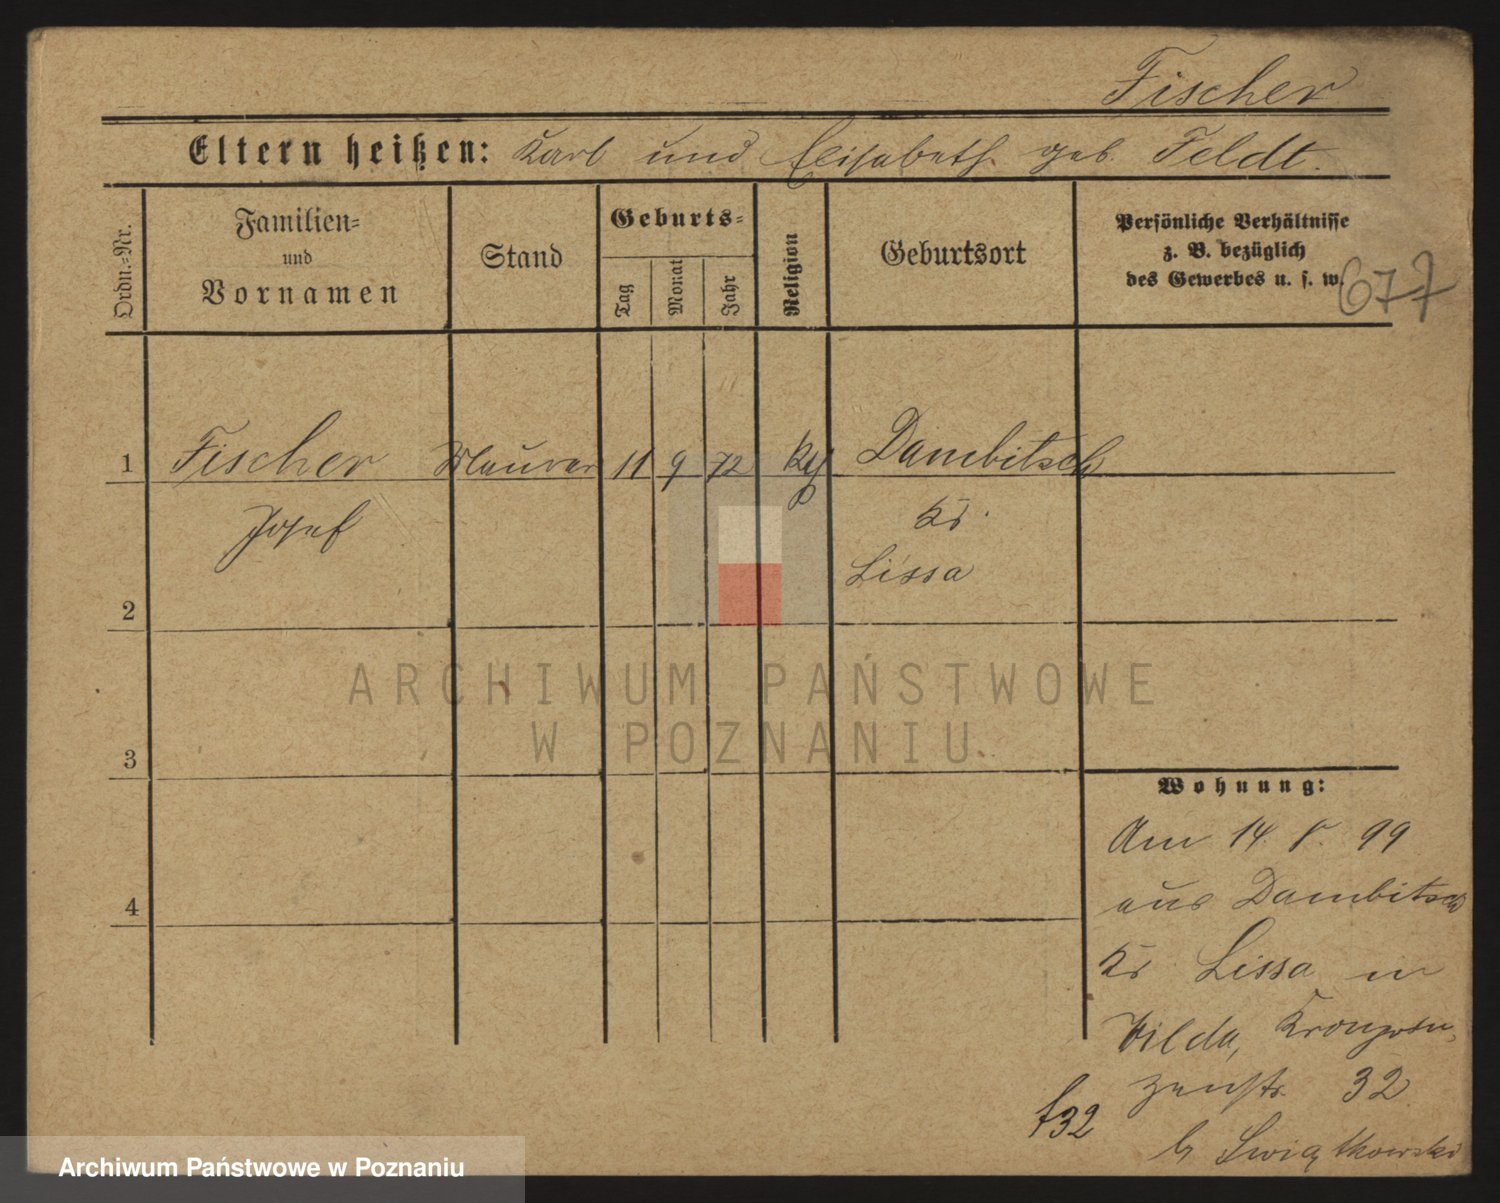 Fischer
Eltern heißen: Karl und Elisabeth geb. Feldt.
Ordn.-Nr.
Familien-
und
Vornamen
Stand
Geburts-
Tag
Monat
Jahr
Religion
Geburtsort
Persönliche Verhältnisse
z. B. bezüglich
des Gewerbes u. s. w.
677
1 Fischer Maurer 11 9 72 Dambitsch
Josef Kr.
Lissa
2
3
4
Wohnung:
Am 14. 8. 99
aus Dambitsch
Kr Lissa in
Wilda, Kronprin-
zenstr. 32
b Swiątkowski
f32
ARCHIWUM PAŃSTWOWE
W POZNANIU
Archiwum Państwowe w Poznaniu